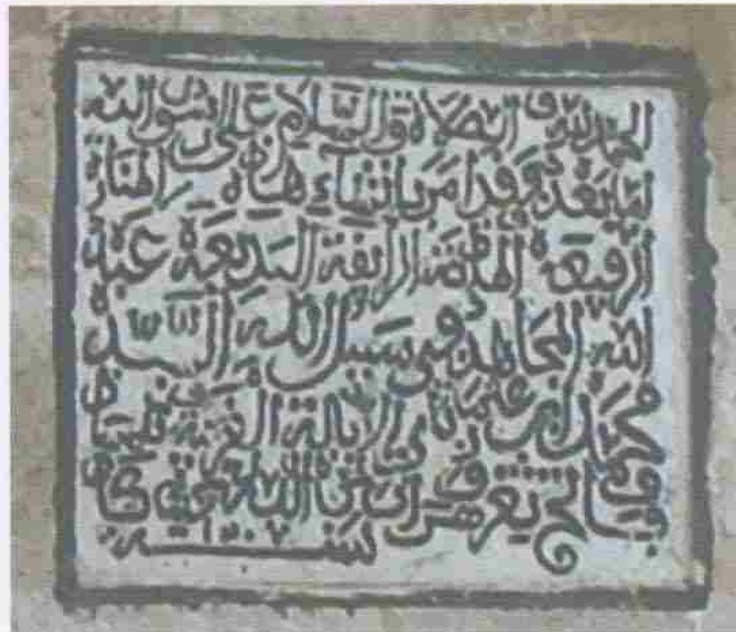 الحمد لله و الصلاة و السلام على رسول الله
وبعد فقد أمر بإنشاء هاذه المنارة
الرفيعة الرايقة البديعة عبد
الله المجاهد في سبيل الله السيد
محمد ابن عثمان باي الايالة الغربية
وفاتح ثغر وهران
سنة ١٢٠٧